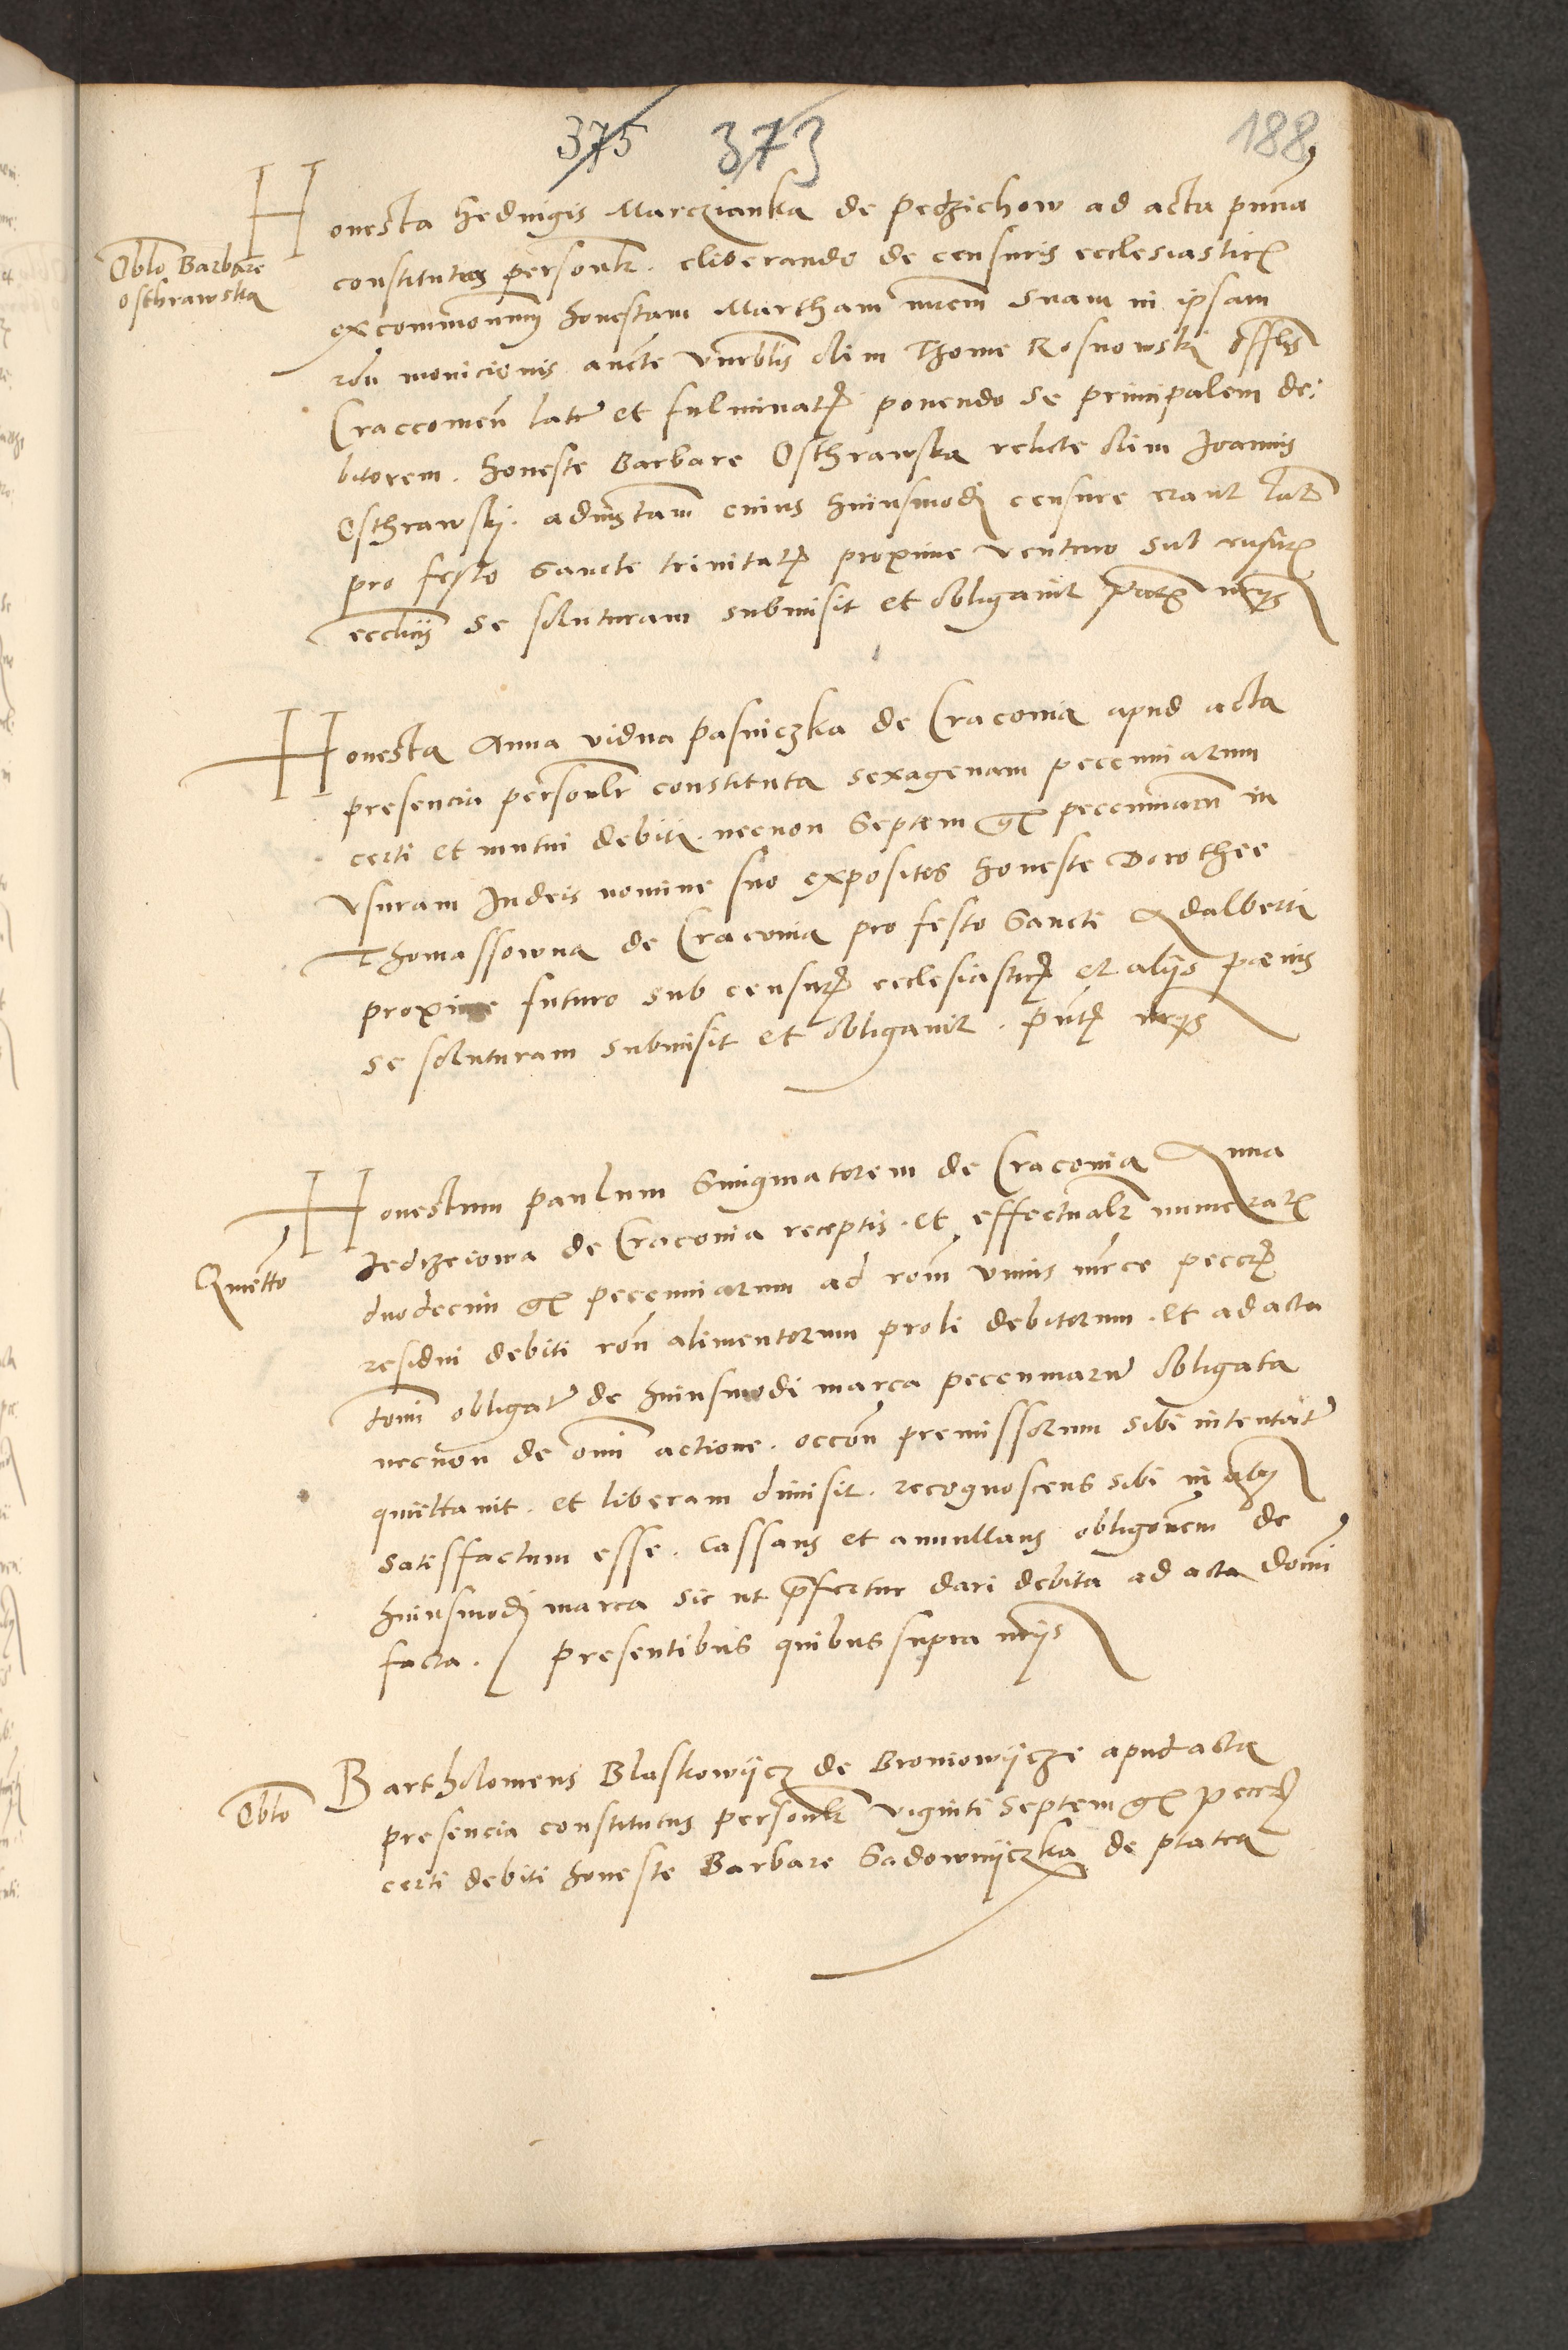 375 373 188
Honesta Hedvigis Marczianka de Pedzichow ad acta pnna
Oblo Barbare
Osthrawska
constituta personlr. eliberando de censuris ecclesiasticis
excommonum honestam Martham mrem suam in ipsam
rdu monicionis aucte vnrblis olim Thome Rosnowski offlis
Craccomen latis et fulminatis ponendo se principalem de:
bitorem. honeste Barbare Osthrawska relicte olim Joannis
Osthrawskj. ad instam cuius huiusmodi censure erant late
pro festo sancte trinitatis proxime venturo sub cusuris
ecclicis se soluturam submisit et obligauit pntibus
Honesta Anna vidua Pasniczka de Craconia apud acta
presencia personlr constituta sexagenam pecenniarum
certi et mutui debiti. necnon septem gr pecenniarum in
vsuram Judeis nomine suo expositos honeste Dorothee
Thomassowna de Craconia pro festo sancti Adalberti
proxime futuro sub censuris ecclesiasticis et alijs paenis
se soluturam submisit et obligauit. pntibus
Honestum paulum Smigmatorem de Craconia Anna
Jedrzeiowa de Craconia receptis. et effectualr numeratis
Quietto
duodecim gr pecenniarum ad rom vnius mrce peccrum
residui debiti rom alimentorum proli debitorum. et ad acta
domi obligatis de huiusmodi marca pecenniarum obligata
necnon de omi actione. occom premissorum sibi intentatis
quittauit. et liberam dimisit. recognoscens sibi in
satisfactum esse. cassans et annullans obligonem de
huiusmodi marca sic ut prefertur dari debita ad acta domi
facta. presentibus quibus supra
Bartholomeus Blaskowycz de Broniowycze apud acta
Obto
presencia constitutus personlr viginti septem gr peccrum
certi debiti honeste Barbare Sadowniczka de platea